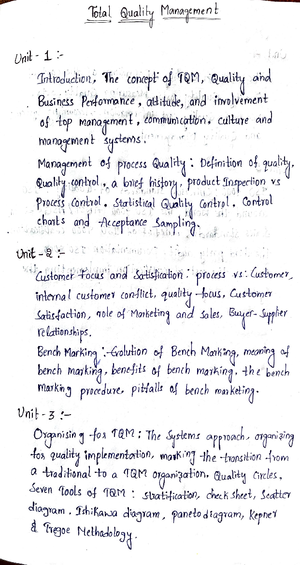 Total Quality Management
Unit - 1 :-
Introduction, The concept of TQM, Quality and
Business Performance, attitude, and involvement
of top management, communication, culture and
management systems.
Management of process Quality : Definition of quality,
Quality control, a brief history, product Inspection vs
Process Control, Statistical Quality Control, Control
charts and Acceptance Sampling.
Unit - 2 :-
Customer Focus and Satisfication : process vs. Customer,
internal customer conflict, quality focus, Customer
Satisfaction, role of Marketing and Sales, Buyer-Supplier
relationships.
Bench Marking :- Evolution of Bench Marking, meaning of
bench marking, benefits of bench marking, the bench
marking procedure, pitfalls of bench marketing.
Unit - 3 :-
Organising for TQM : The Systems approach, organizing
for quality implementation, marking the transition from
a traditional to a TQM organization, Quality Circles.
Seven Tools of TQM : Stratification, check sheet, Scatter
diagram, Ishikawa diagram, paneto diagram, Kepner
& Tregoe Methadology.